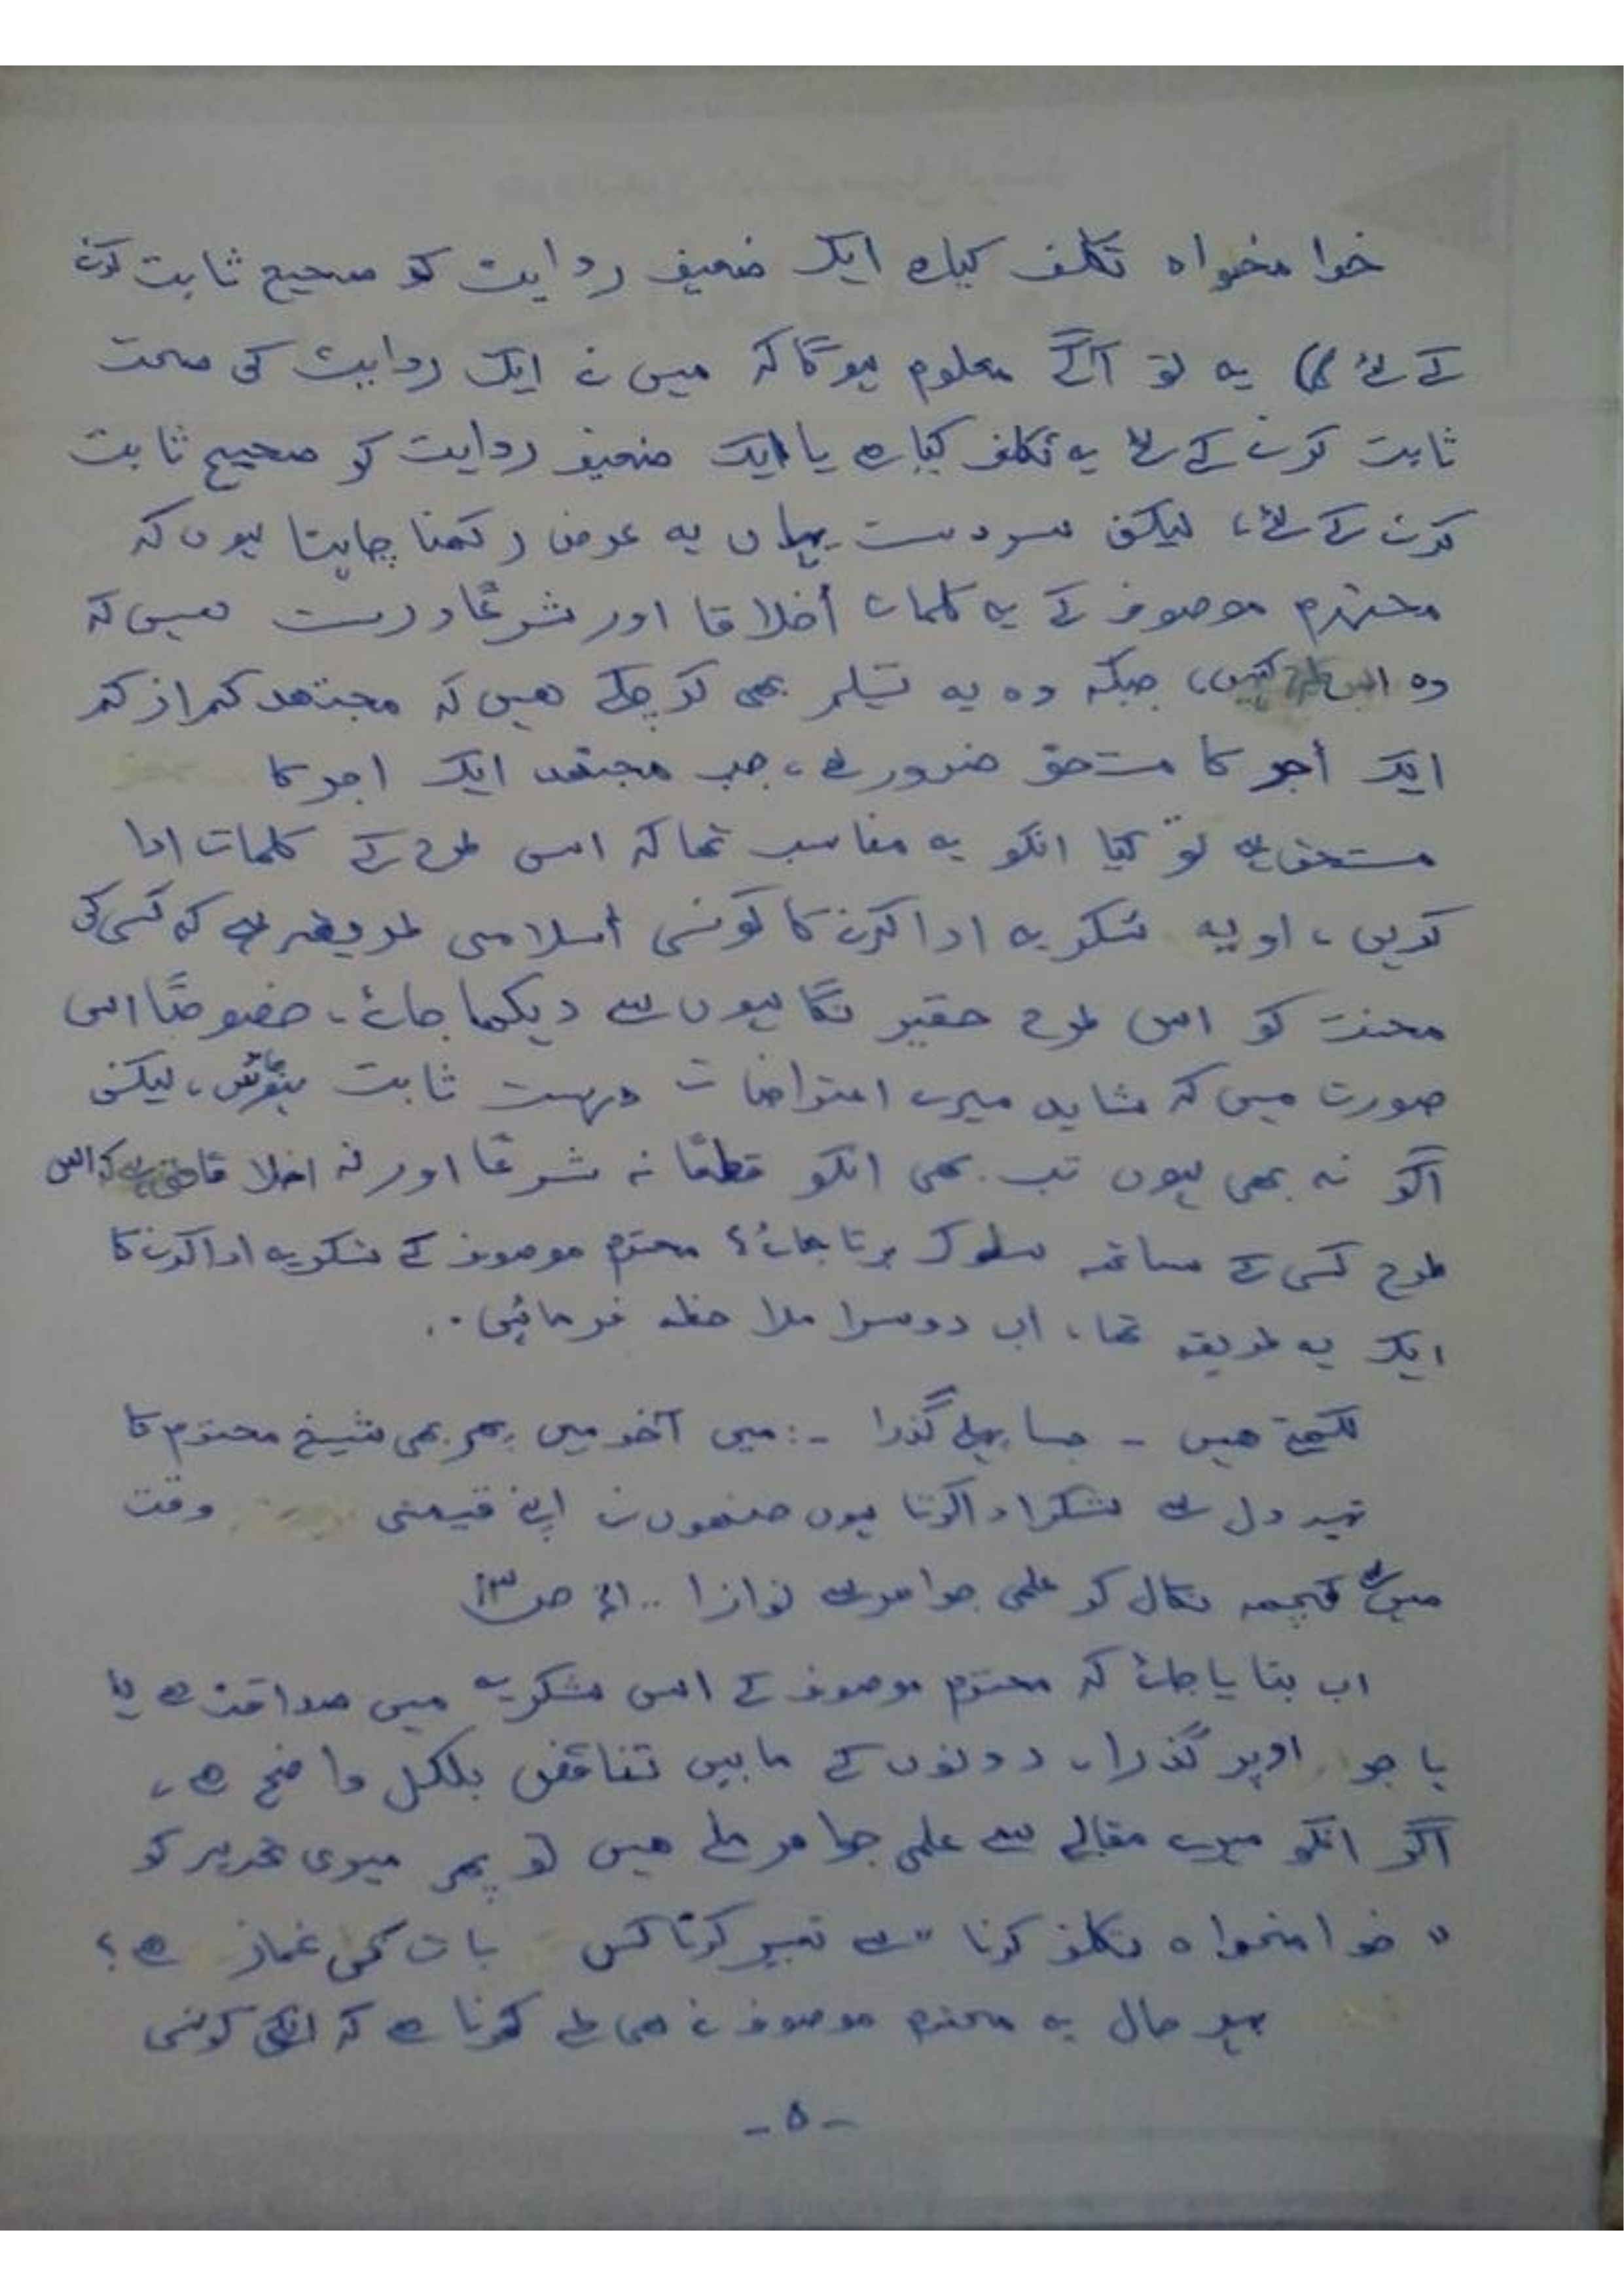 خوا مخواہ تکلف کیا ہے ایک ضعیف روایت کو صحیح ثابت کرنے
کے لئے) یہ تو آگے معلوم ہوگا کہ میں نے ایک روایت کی صحت
ثابت کرنے کے لئے یہ تکلف کیا ہے یا ایک ضعیف روایت کو صحیح ثابت
کرنے کے لئے، لیکن سردست یہاں یہ عرض رکھنا چاہتا ہوں کہ
محترم موصوف کے یہ کلمات أخلاقا اور شرعًا درست نہیں کہ
وہ اس طرح کہیں، جبکہ وہ یہ تسلیم بھی کر چکے ھیں کہ مجتھد کم از کم
ایک أجر کا مستحق ضرور ہے، جب مجتھد ایک اجر کا
مستحق ہے تو کیا انکو یہ مناسب تھا کہ اس طرح کے کلمات ادا
کریں، اور یہ شکریہ ادا کرنے کا کونسی أسلامی طریقہ ہے کہ کسی کی
محنت کو اس طرح حقیر نگاہیوں سے دیکھا جائے، خصوصًا اس
صورت میں کہ شاید میرے اعتراضات درست ثابت ، لیکن
اگر نہ بھی ہوں تب بھی انکو قطعًا نہ شرعًا اور نہ اخلاقا حق ہے کہ اس
طرح کسی کے ساتھ سلوک برتا جائے؟ محترم موصوف کے شکریہ ادا کرنے کا
ایک یہ طریقہ تھا، اب دوسرا ملاحظہ فرمائیں.
لکھتے ھیں - جیسا پہلے گذرا -: میں آخر میں پھر بھی شیخ محترم کا
تہہ دل سے شکر ادا کرتا ہوں جنھوں نے اپنے قیمتی وقت
میں سے کچھ نکال کر علمی جواھر سے نوازا .. الخ ص ۱۳
اب بتایا جائے کہ محترم موصوف کے اس شکریہ میں صداقت ہے یا
یا جو اوپر گذرا، دونوں کے مابین تناقض بلکل واضح ہے،
اگر انکو میرے مقالے سے علمی جواھر ملے ھیں تو پھر میری تحریر کو
" خوا مخواہ تکلف کرنا " سے تعبیر کرنا کس بات کی غماز ہے؟
بہر حال یہ محترم موصوف نے ھی طے کرنا ہے کہ انکی کونسی
- ۵ -